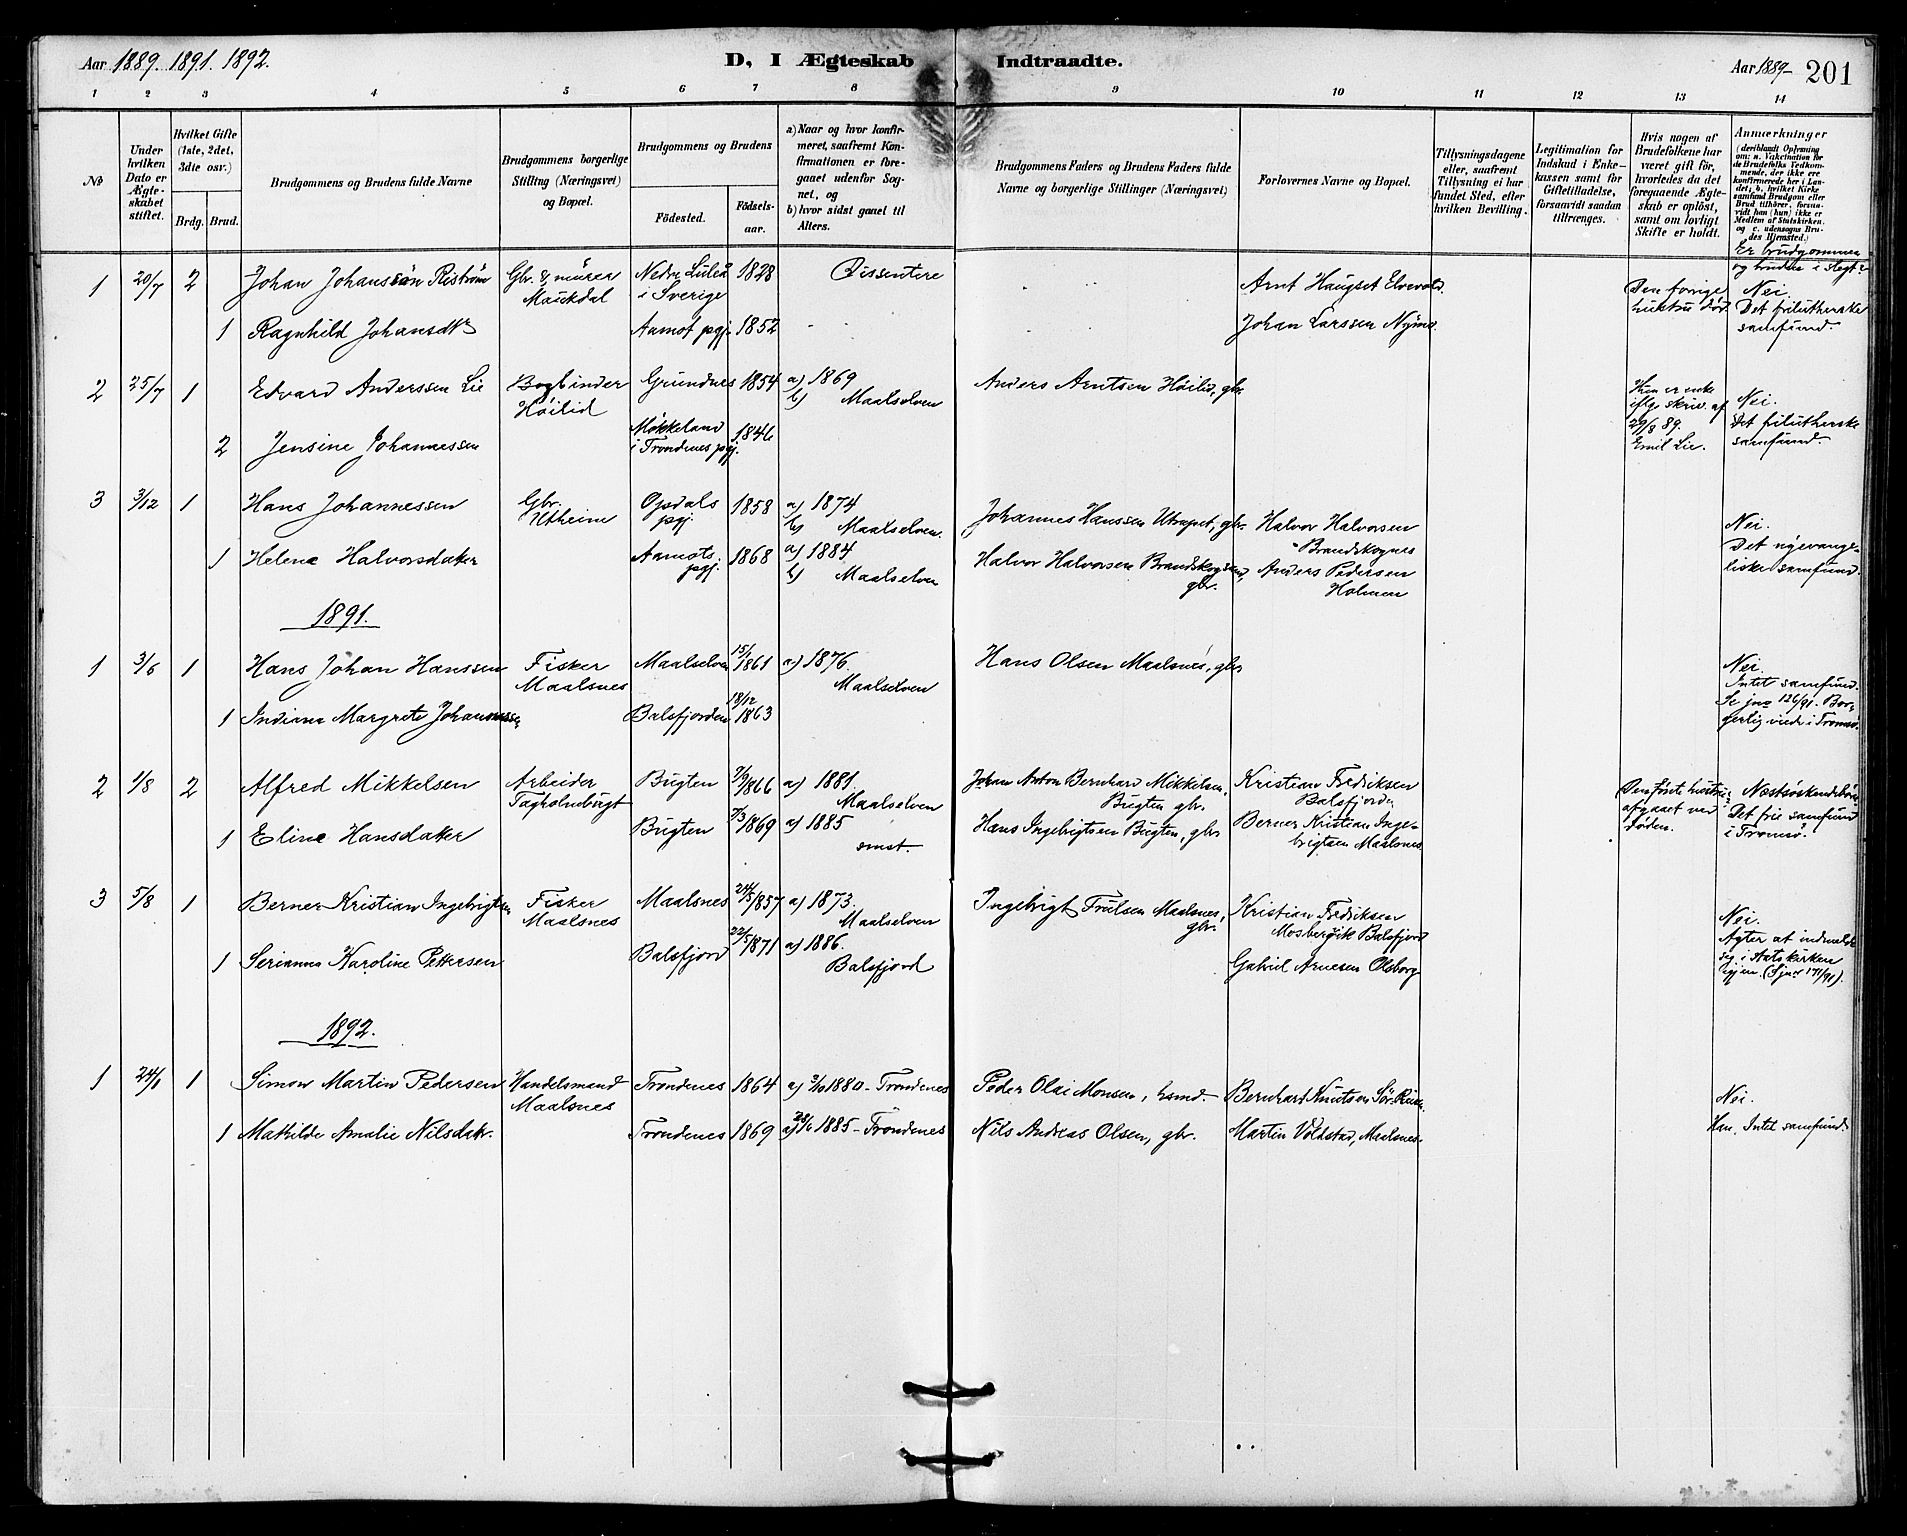 Aar 1889. 1891. 1892.
D, I Ægteskab Indtraadte.
Aar 1889– 201
1 2 3 4 5 6 7 8 9 10 11 12 13 14
No
Under hvilken Dato er Ægteskabet stiftet.
Hvilket Gifte (1ste, 2det, 3die osv.)
Brdg. Brud.
Brudgommens og Brudens fulde Navne
Brudgommens borgerlige Stilling (Næringsvei) og Bopæl.
Brudgommens og Brudens
Födested. Födselsaar.
a) Naar og hvor konfirmeret, saafremt Konfirmationen er foregaaet udenfor Sognet, og
b) hvor sidst gaaet til Alters.
Brudgommens Faders og Brudens Faders fulde Navne og borgerlige Stillinger (Næringsvei)
Forlovernes Navne og Bopæl.
Tillysningsdagene eller, saafremt Tillysning ei har fundet Sted, efter hvilken Bevilling.
Legitimation for Indskud i Enkekassen samt for Giftetilladelse, forsaavidt saadan tiltrænges.
Hvis nogen af Brudefolkene har været gift för, hvorledes da det foregaaende Ægteskab er oplöst, samt om lovligt Skifte er holdt.
Anmærkninger (deriblandt Oplysning om: a. Vakcination for de Brudefolks Vedkommende, der ikke ere konfirmerede her i Landet; b. hvilket Kirkesamfund Brudgom eller Brud tilhörer, forsaavidt han (hun) ikke er Medlem af Statskirken, og c. udensogns Brudes Hjemsted.)
Er brudgommen og bruden i slegt?
1 20/7 2 Johan Johanssön Riström Gbr. & murer Maukdal Nedre Luleå i Sverige 1828 Dissentere Arnt Haugset Elvevold. Den forrige hustru död. Nei. Det frilutherske samfund.
1 Ragnhild Johansdtr Aamot pgj. 1852 Johan Larssen Nymo.
2 25/7 1 Edvard Anderssen Lie Bogbinder Höilid Grundnes 1854 a) 1869 b) Maalselven Anders Arntsen Höilid, gbr. Hun er enke iflg. skriv. af 29/8 89. Emil Lie. Nei. Det frilutherske samfund.
2 Jensine Johannessen Mökkeland i Trondenes pgj. 1846
3 3/12 1 Hans Johannessen Gbr. Utheim Opdals pgj. 1858 a) 1874 b) Maalselven. Johannes Hanssen, gbr. Halvor Halvorsen Brandskognes Nei. Det evangeliske samfund.
1 Helene Halvorsdaker Aamots pgj. 1868 a) 1884 b) Maalselven Halvor Halvorsen gbr. Anders Pedersen Holmen
1891.
1 3/6 1 Hans Johan Hanssen Fisker Maalsnes Maalselven 15/1 1861 a) 1876. Maalselven Hans Olsen Maalsnes, gbr Nei. Intet samfund. Se jno 126/91. Borgerlig viede i Tromsö.
1 Indiana Margrete Johannessen Balsfjorden 18/12 1863
2 1/8 2 Alfred Mikkelsen Arbeider Bugten 7/9 1866 a) 1881. Maalselven Johan Anton Bernhard Mikkelsen, Bugten gbr. Kristian Fredriksen Balsfjorden Den förste hustru afgaaet ved döden. Næstsöskendebörn. Det frie samfund i Tromsö.
1 Eline Hansdaker Bugten 7/3 1869 a) 1885 smst. Hans Ingebrigtsen Bugten, gbr Berner Kristian Ingebrigtsen Maalsnes
3 5/8 1 Berner Kristian Ingebrigtsen Fisker Maalsnes Maalsnes 24/5 1857 a) 1873. Maalselven Ingebrigt Trulsen Maalsnes, gbr. Kristian Fredriksen Balsfjord Nei. Agter at indmelde sig i statskirken igjen. (Sjno 171/91).
1 Serianna Karoline Pettersen Balsfjord 22/5 1871 a) 1886. Balsfjord Gabriel Arnesen Olsborg
1892.
1 24/1 1 Simon Martin Pedersen Handelsmand Maalsnes Trondenes 1864 a) 3/10 1880 – Trondenes Peder Olai Monsen, husmd. Bernhard Knutsen Nei.
1 Mathilde Amalie Nilsdatr. Trondenes 1869 a) 1885 – Trondenes Nils Andreas Olsen, gbr. Martin Voldstad, Maalsnes. Han. Intet samfund.